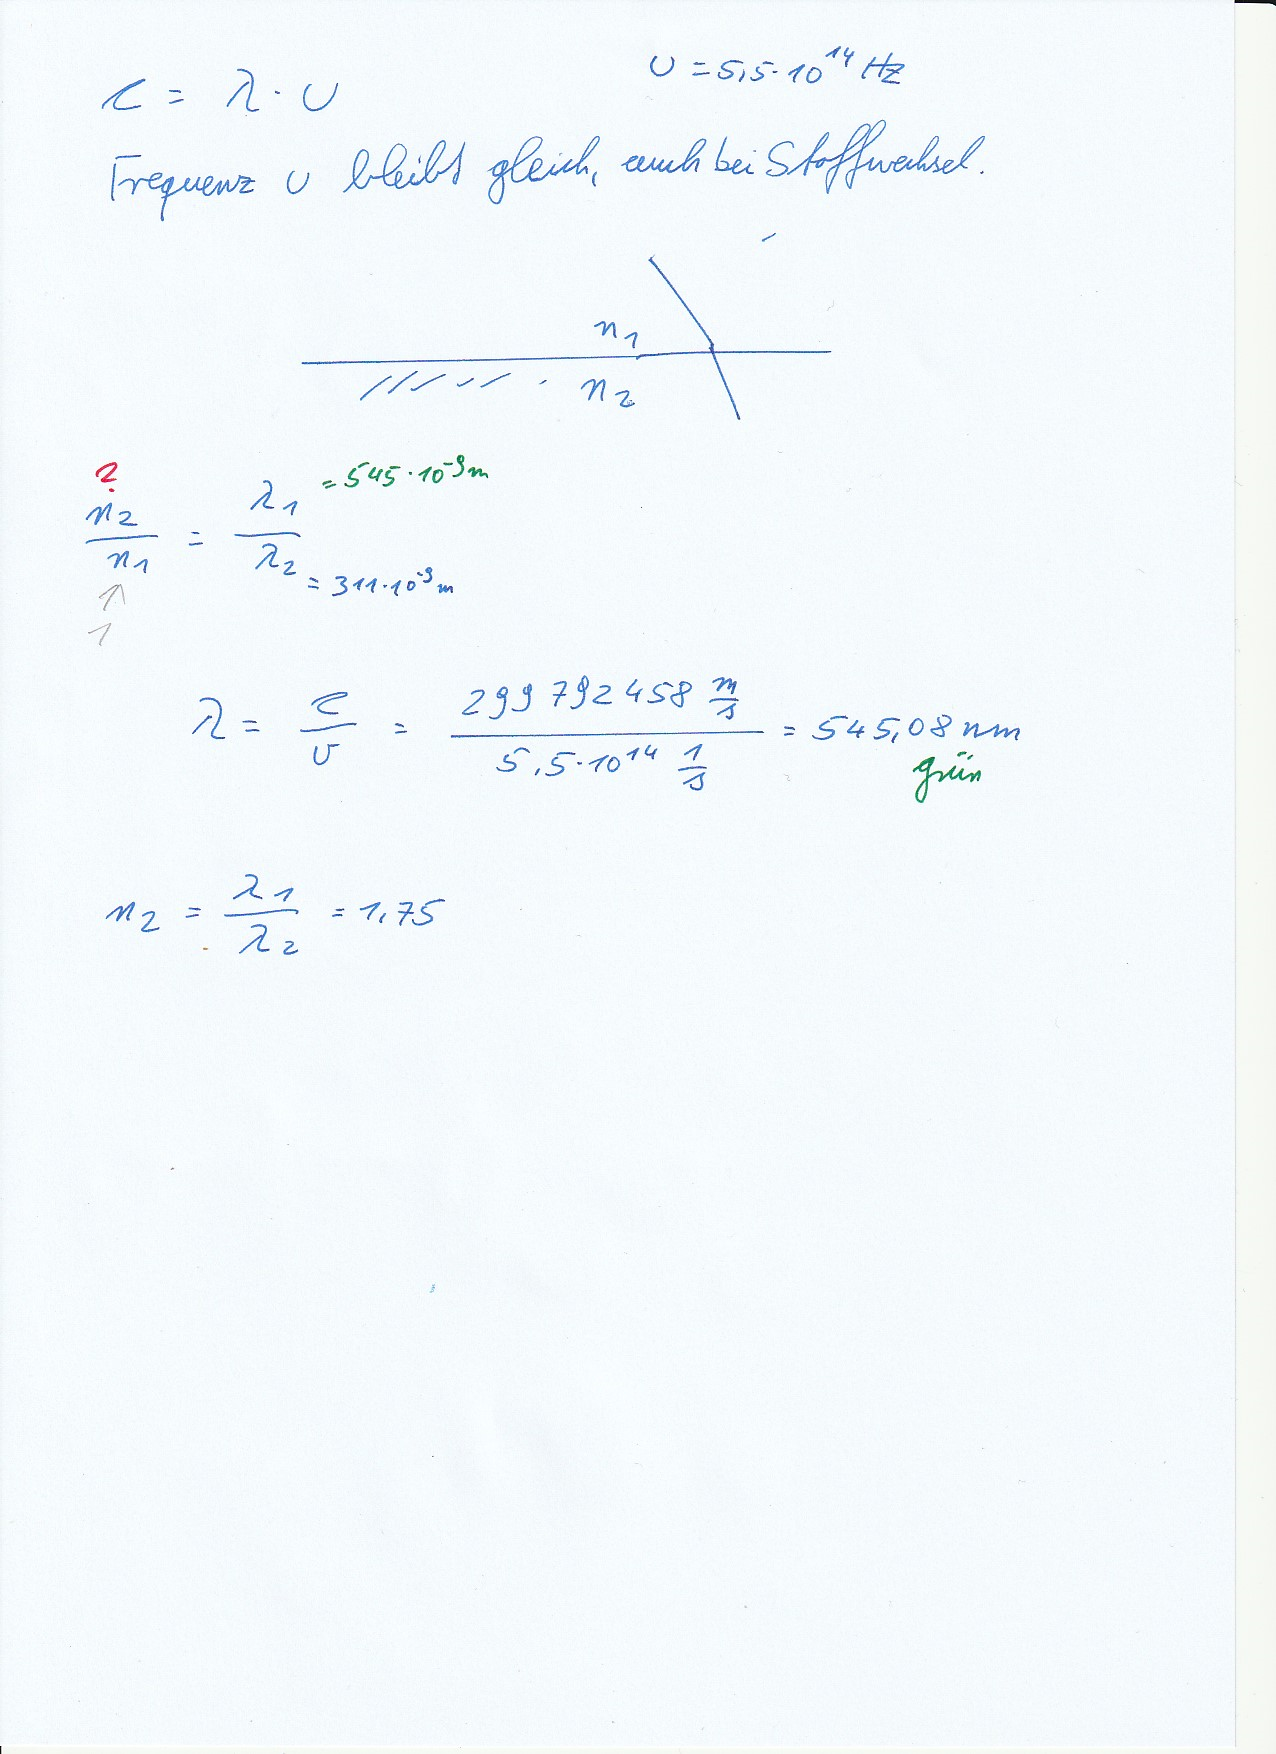 c = λ · υ
υ = 5,5·10¹⁴ Hz
Frequenz υ bleibt gleich, auch bei Stoffwechsel.
n₁
n₂
?
n₂/n₁ = λ₁/λ₂
= 545·10⁻⁹m
= 311·10⁻⁹m
↑
1
λ = c/υ = 299 792 458 m/s / 5,5·10¹⁴ 1/s = 545,08 nm
grün
n₂ = λ₁/λ₂ = 1,75